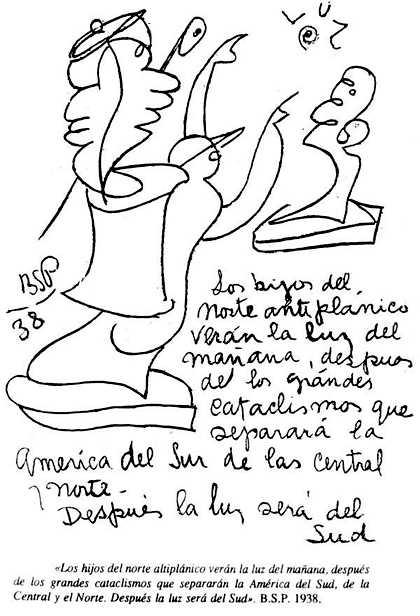 LUZ
BSP
38
Los hijos del
norte antiplánico
verán la luz del
mañana, despues
de los grandes
cataclismos que
separará la
America del Sur de las Central
y norte.
Después la luz será del
Sud
«Los hijos del norte altiplánico verán la luz del mañana, después
de los grandes cataclismos que separarán la América del Sud, de la
Central y el Norte. Después la luz será del Sud». B.S.P. 1938.